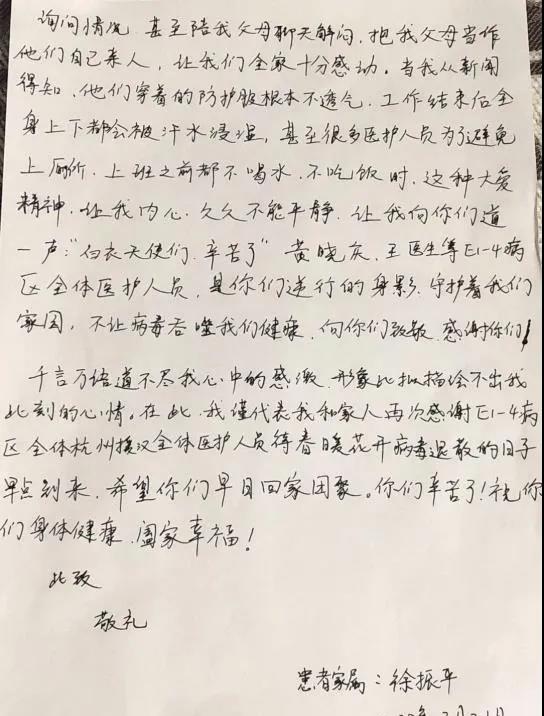 询问情况，甚至陪我父母聊天解闷，把我父母当作
他们自己亲人，让我们全家十分感动。当我从新闻
得知，他们穿着的防护服根本不透气，工作结束后全
身上下都会被汗水浸湿，甚至很多医护人员为了避免
上厕所，上班之前都不喝水，不吃饭时，这种大爱
精神，让我内心久久不能平静，让我向你们道
一声："白衣天使们，辛苦了" 黄晓灰，王医生等E1-4病
区全体医护人员，是你们逆行的身影，守护着我们
家园，不让病毒吞噬我们健康，向你们致敬，感谢你们！
千言万语道不尽我心中的感激，形象比拟描绘不出我
此刻的心情。在此，我谨代表我和家人再次感谢E1-4病
区全体杭州援汉全体医护人员待春暖花开病毒退散的日子
早点到来，希望你们早日回家团聚。你们辛苦了！祝你
们身体健康，阖家幸福！
此致
敬礼
患者家属：徐振平